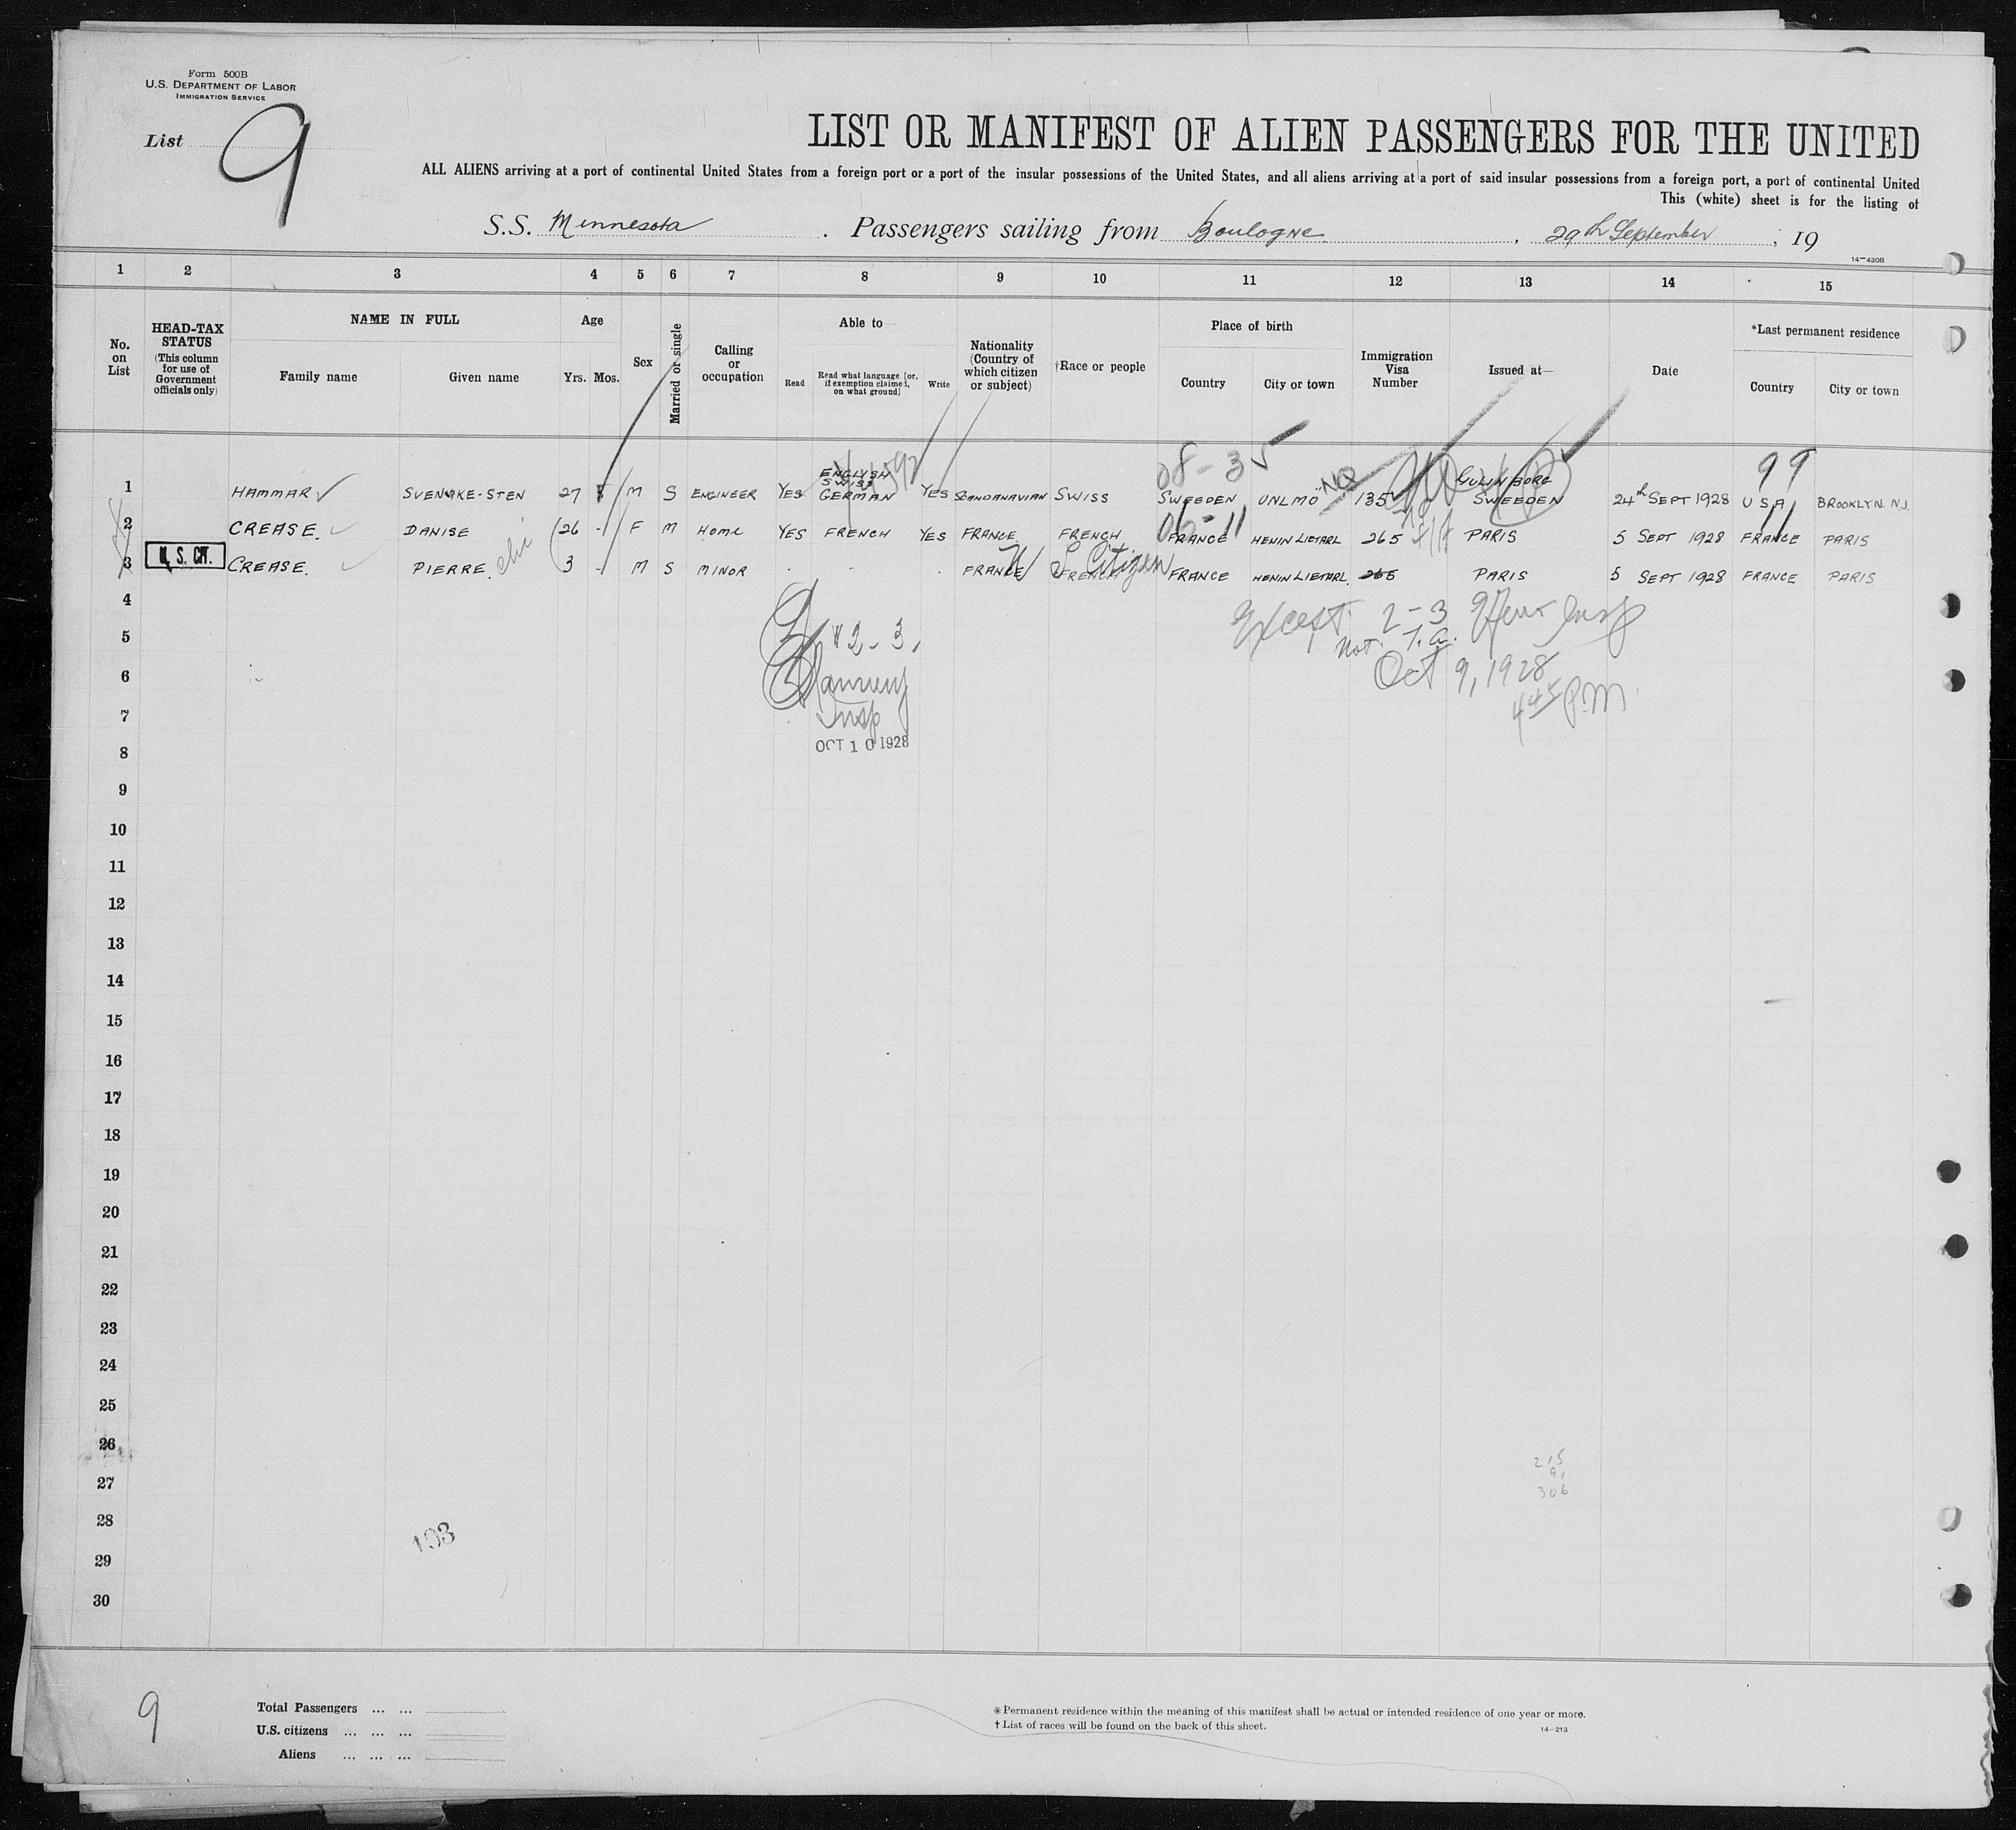 Form 500B
U.S. DEPARTMENT OF LABOR
IMMIGRATION SERVICE
List 9
LIST OR MANIFEST OF ALIEN PASSENGERS FOR THE UNITED
ALL ALIENS arriving at a port of continental United States from a foreign port or a port of the insular possessions of the United States, and all aliens arriving at a port of said insular possessions from a foreign port, a port of continental United
This (white) sheet is for the listing of
S.S. Minnesota . Passengers sailing from Boulogne , 29th September , 19
14-430B
1 2 3 4 5 6 7 8 9 10 11 12 13 14 15
No. on List
HEAD-TAX STATUS (This column for use of Government officials only)
NAME IN FULL
Family name Given name
Age
Yrs. Mos.
Sex
Married or single
Calling or occupation
Able to
Read Read what language [or, if exemption claimed, on what ground] Write
Nationality (Country of which citizen or subject)
†Race or people
Place of birth
Country City or town
Immigration Visa Number
Issued at—
Date
*Last permanent residence
Country City or town
08-35 99
ENGLISH
SWISS
1 HAMMAR SVENAKE-STEN 27 M S ENGINEER YES GERMAN YES SCANDANAVIAN SWISS SWEEDEN UNLMO NQ 135 SWEEDEN 24th SEPT 1928 USA BROOKLYN N.J.
06-11 11
2 CREASE DANISE 26 - F M HOME YES FRENCH YES FRANCE FRENCH FRANCE HENIN LIETARL 265 PARIS 5 SEPT 1928 FRANCE PARIS
3 U.S. CIT. CREASE. PIERRE. 3 - M S MINOR FRANCE FRENCH U S Citizen FRANCE HENIN LIETARL 265 PARIS 5 SEPT 1928 FRANCE PARIS
4
Except 2-3 Insp
5
#2-3.
Not. T.a.
6
Oct 9, 1928
7
Insp
4 45 P.M.
OCT 10 1928
8
9
10
11
12
13
14
15
16
17
18
19
20
21
22
23
24
25
26
215
91
306
27
28
193
29
30
9
Total Passengers ... ...
U.S. citizens ... ... ...
Aliens ... ... ...
* Permanent residence within the meaning of this manifest shall be actual or intended residence of one year or more.
† List of races will be found on the back of this sheet.
14-213